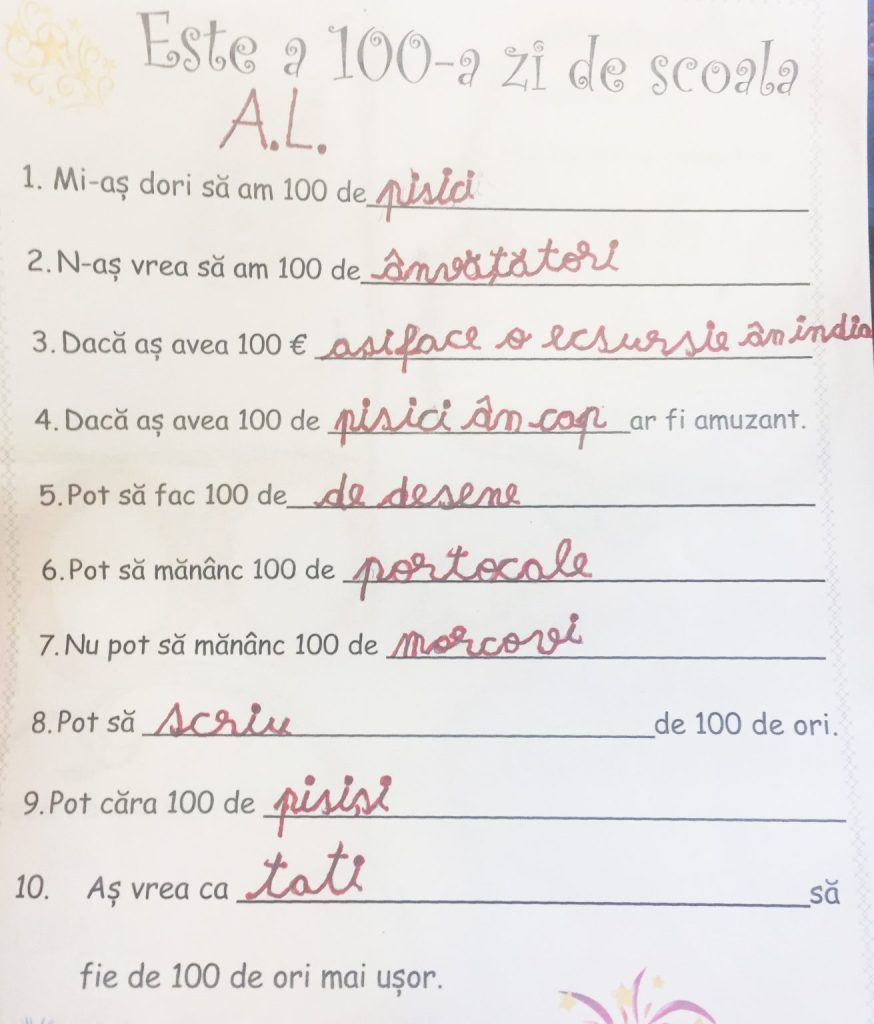 Este a 100-a zi de scoala
A.L.
1. Mi-aș dori să am 100 de pisici
2. N-aș vrea să am 100 de ânvățători
3. Dacă aș avea 100 € asiface o ecsursie ân india
4. Dacă aș avea 100 de pisici ân cap ar fi amuzant.
5. Pot să fac 100 de de desene
6. Pot să mănânc 100 de portocale
7. Nu pot să mănânc 100 de morcovi
8. Pot să scriu de 100 de ori.
9. Pot căra 100 de pisiși
10. Aș vrea ca tati să
fie de 100 de ori mai ușor.